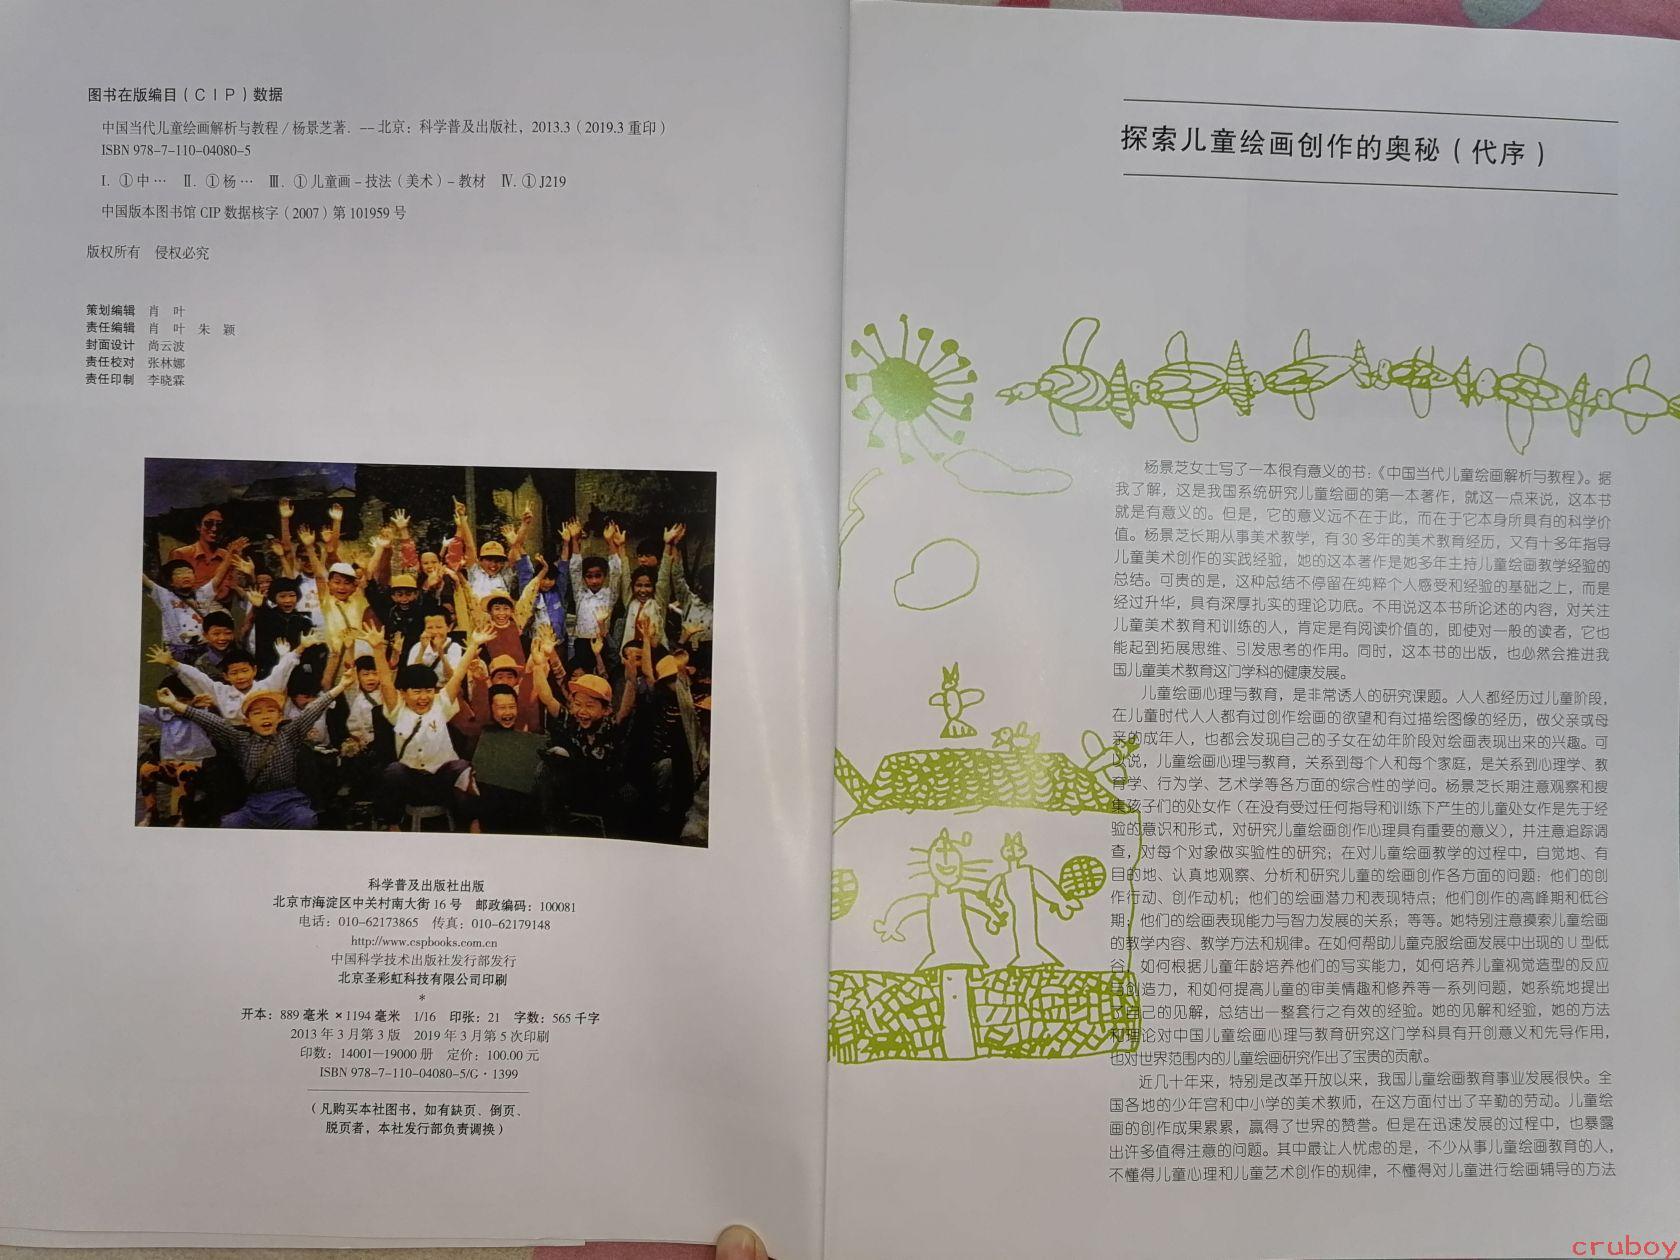 图书在版编目(CIP)数据
中国当代儿童绘画解析与教程/杨景芝著. —北京:科学普及出版社,2013.3(2019.3重印)
ISBN 978-7-110-04080-5
Ⅰ. ①中… Ⅱ. ①杨… Ⅲ. ①儿童画-技法(美术)-教材 Ⅳ. ①J219
中国版本图书馆CIP数据核字(2007)第101959号
版权所有 侵权必究
策划编辑 肖 叶
责任编辑 肖 叶 朱 颖
封面设计 尚云波
责任校对 张林娜
责任印制 李晓霖
科学普及出版社出版
北京市海淀区中关村南大街16号 邮政编码:100081
电话:010-62173865 传真:010-62179148
http://www.cspbooks.com.cn
中国科学技术出版社发行部发行
北京圣彩虹科技有限公司印刷
*
开本:889毫米×1194毫米 1/16 印张:21 字数:565千字
2013年3月第3版 2019年3月第5次印刷
印数:14001—19000册 定价:100.00元
ISBN 978-7-110-04080-5/G·1399
(凡购买本社图书,如有缺页、倒页、
脱页者,本社发行部负责调换)
探索儿童绘画创作的奥秘(代序)
杨景芝女士写了一本很有意义的书:《中国当代儿童绘画解析与教程》。据
我了解,这是我国系统研究儿童绘画的第一本著作,就这一点来说,这本书
就是有意义的。但是,它的意义远不在于此,而在于它本身所具有的科学价
值。杨景芝长期从事美术教学,有30多年的美术教育经历,又有十多年指导
儿童美术创作的实践经验,她的这本著作是她多年主持儿童绘画教学经验的
总结。可贵的是,这种总结不停留在纯粹个人感受和经验的基础之上,而是
经过升华,具有深厚扎实的理论功底。不用说这本书所论述的内容,对关注
儿童美术教育和训练的人,肯定是有阅读价值的,即使对一般的读者,它也
能起到拓展思维、引发思考的作用。同时,这本书的出版,也必然会推进我
国儿童美术教育这门学科的健康发展。
儿童绘画心理与教育,是非常诱人的研究课题。人人都经历过儿童阶段,
在儿童时代人人都有过创作绘画的欲望和有过描绘图像的经历,做父亲或母
亲的成年人,也都会发现自己的子女在幼年阶段对绘画表现出来的兴趣。可
以说,儿童绘画心理与教育,关系到每个人和每个家庭,是关系到心理学、教
育学、行为学、艺术学等各方面的综合性的学问。杨景芝长期注意观察和搜
集孩子们的处女作(在没有受过任何指导和训练下产生的儿童处女作是先于经
验的意识和形式,对研究儿童绘画创作心理具有重要的意义),并注意追踪调
查,对每个对象做实验性的研究;在对儿童绘画教学的过程中,自觉地、有
目的地、认真地观察、分析和研究儿童的绘画创作各方面的问题:他们的创
作行动、创作动机;他们的绘画潜力和表现特点;他们创作的高峰期和低谷
期;他们的绘画表现能力与智力发展的关系;等等。她特别注意摸索儿童绘画
的教学内容、教学方法和规律。在如何帮助儿童克服绘画发展中出现的U型低
谷,如何根据儿童年龄培养他们的写实能力,如何培养儿童视觉造型的反应
与创造力,和如何提高儿童的审美情趣和修养等一系列问题,她系统地提出
了自己的见解,总结出一整套行之有效的经验。她的见解和经验,她的方法
和理论对中国儿童绘画心理与教育研究这门学科具有开创意义和先导作用,
也对世界范围内的儿童绘画研究作出了宝贵的贡献。
近几十年来,特别是改革开放以来,我国儿童绘画教育事业发展很快。全
国各地的少年宫和中小学的美术教师,在这方面付出了辛勤的劳动。儿童绘
画的创作成果累累,赢得了世界的赞誉。但是在迅速发展的过程中,也暴露
出许多值得注意的问题。其中最让人忧虑的是,不少从事儿童绘画教育的人,
不懂得儿童心理和儿童艺术创作的规律,不懂得对儿童进行绘画辅导的方法
cruboy